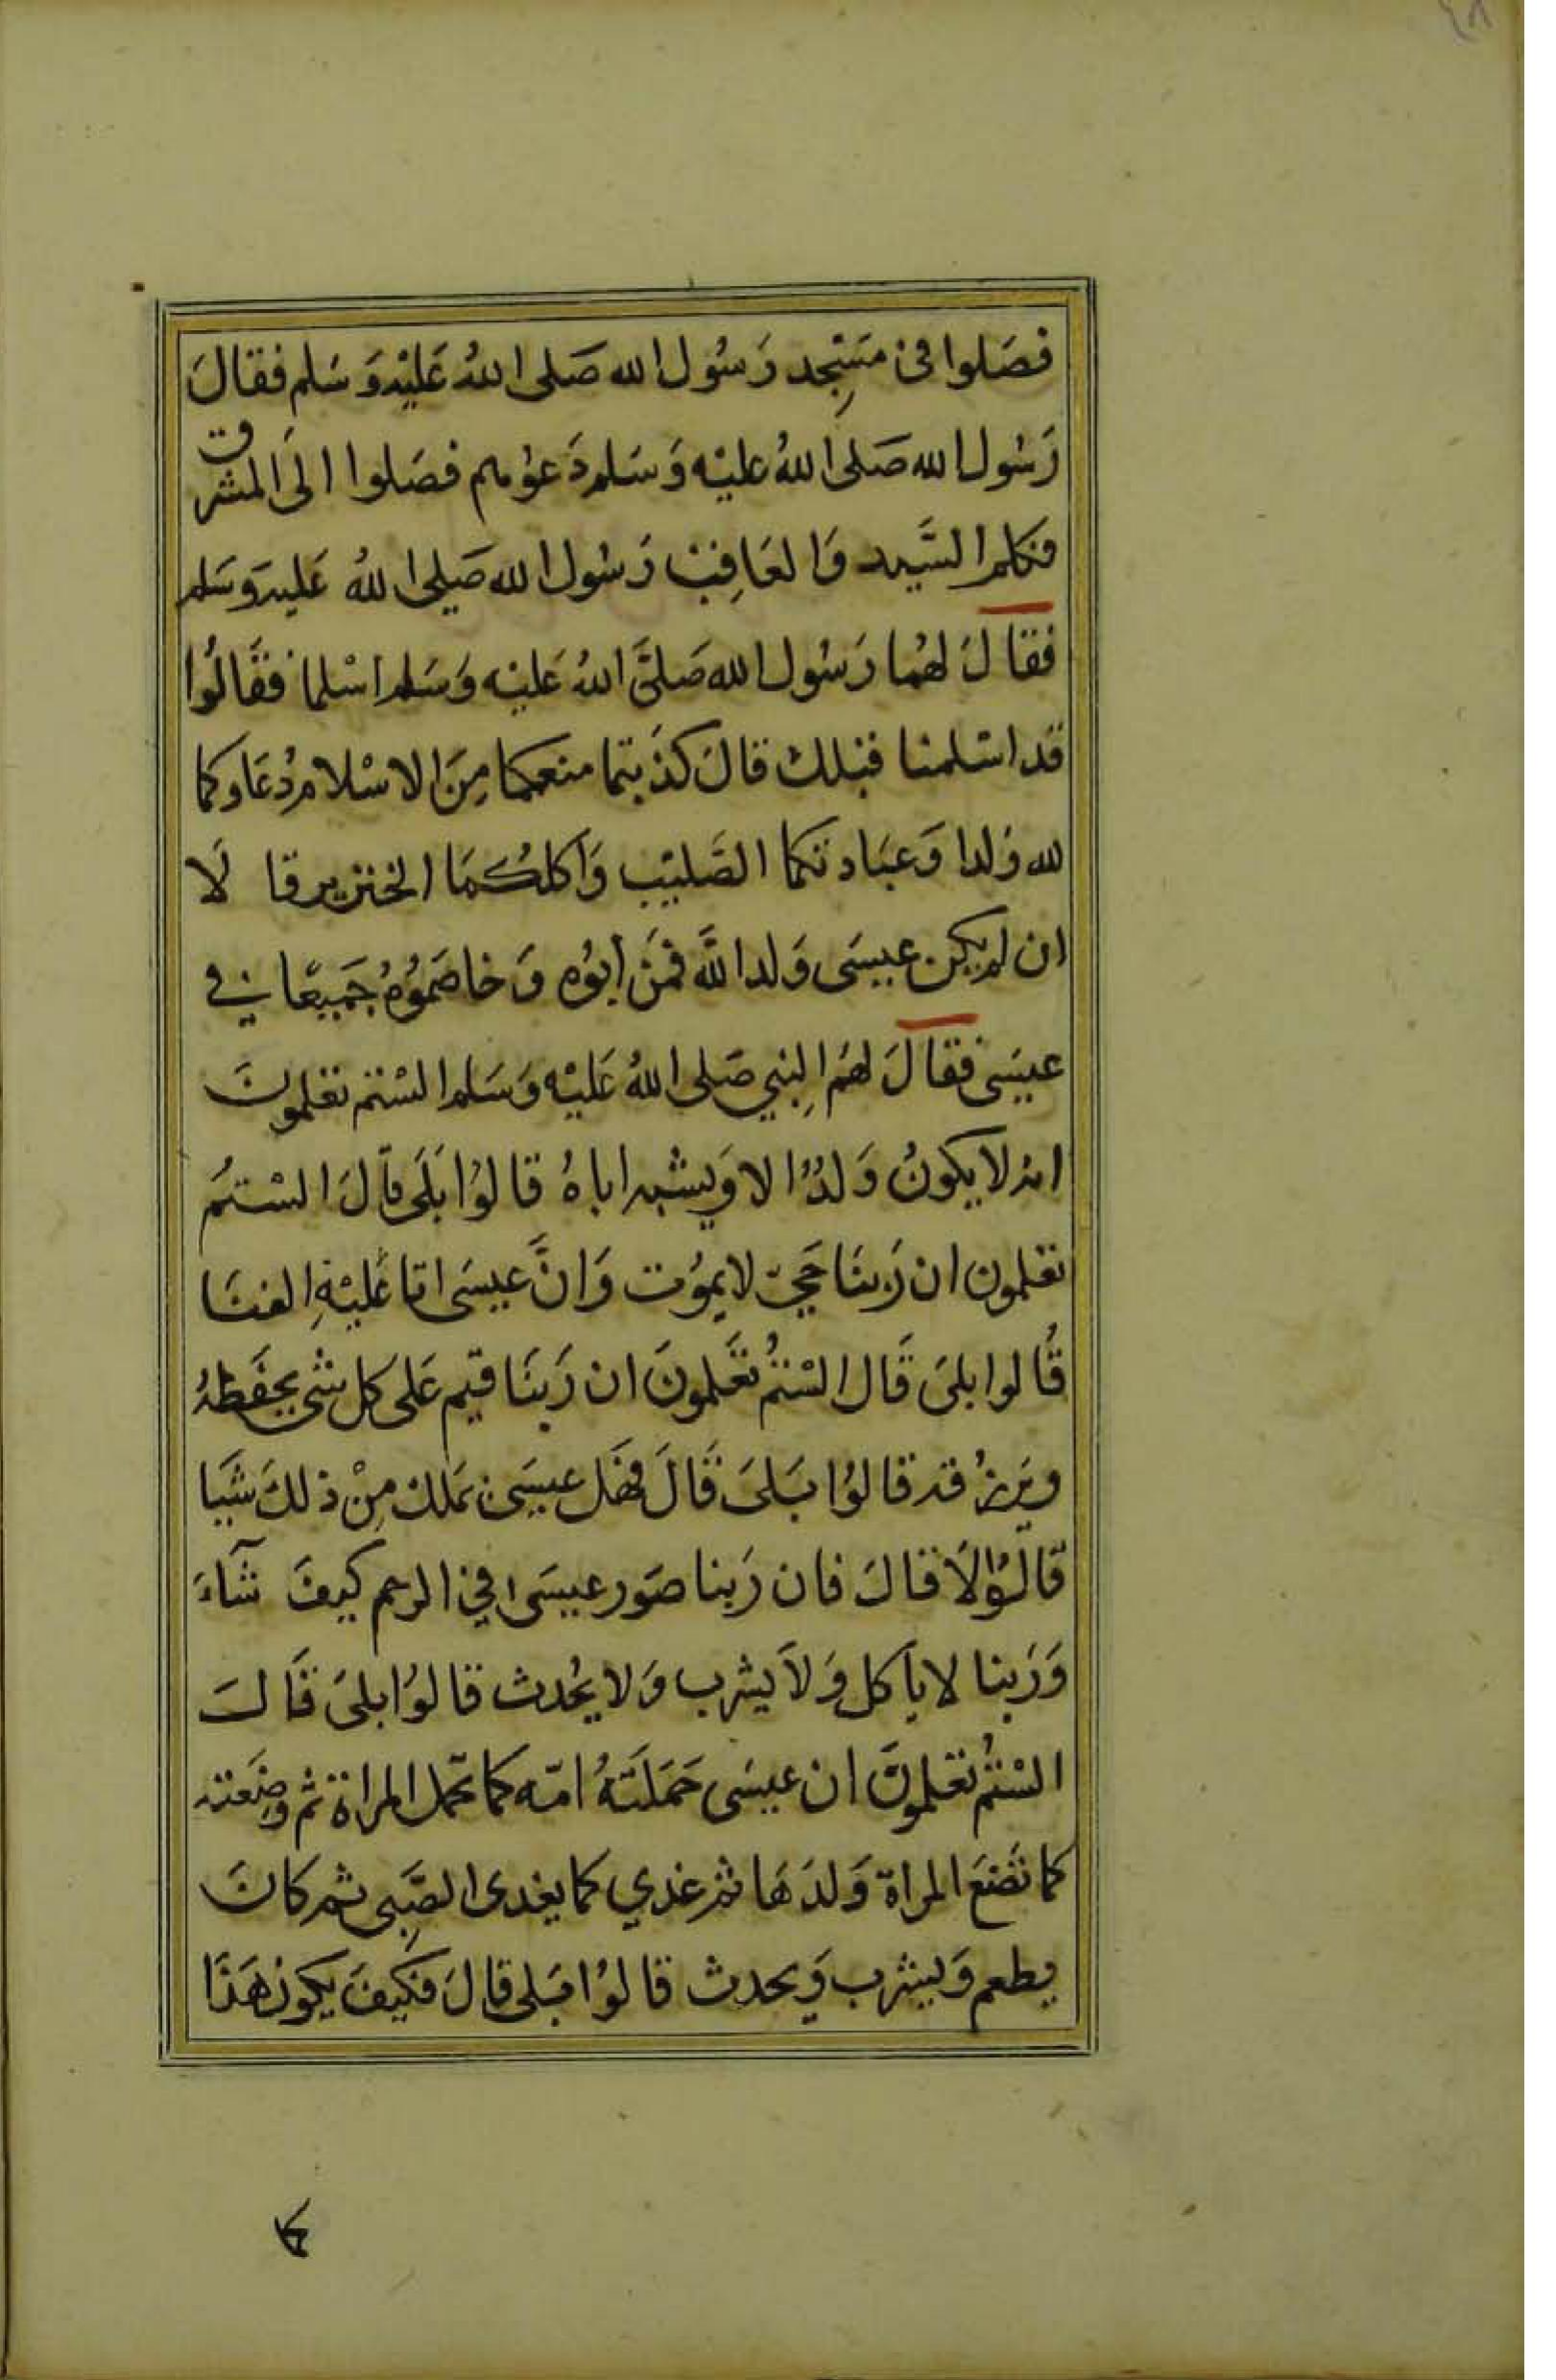 ٤٨
فصَلوا فى مَسْجِد رَسُول الله صَلى اللهُ عَليْه وَسَلم فقالَ
رَسُول الله صَلى اللهُ عليْه وَسَلم دَعوْهم فصَلوا الَى المشرق
فكلم السَّيد وَالعَاقِب رَسُول الله صَلى اللهُ عَليه وسَلم
فقالَ لهُما رَسُول الله صَلىَّ اللهُ عَليْه وَسَلم اسْلما فقَالُوا
قد اسْلمنا قبلك قالَ كذَبتما منعكما مِنَ الاسْلام دُعَاوكما
لله وَلدا وَعبَادتكما الصَّليْب وَاكلكُمَا الخنزير قا لَا
ان لم يكن عيسَى وَلدا للَّه فمَن ابوُه وَخاصَموُهُ جَميعًا في
عيسَى فقالَ لهَم النبِي صَلى اللهُ عَليْه وَسَلم السْتم تعْلموُنَ
انه لا يكونُ وَلدُ الا وَيشْبه اباهُ قالوُا بَلَى قالَ السْتمُ
تعْلمون ان رَبنَا حَيّ لا يموُت وَانَّ عيسَى اتا عَليْهِ الفنَا
قُالوا بلىَ قَال السْتمُ تعَلمونَ ان رَبنَا قيم عَلى كل شَى يحفَظهُ
ويَرزُقه قالوُا بَلىَ قَالَ فهَل عيسَى يَملك مِنْ ذلكَ شَيا
قَالوُا لَا قالَ فان رَبنا صَور عيسَى فِي الرحم كيفَ شَآءَ
وَرَبنا لا ياَكل وَلاَ يشرب وَلا يحُدث قالوُا بلىَ قَالَ
السْتمُ تعْلموُنَ ان عيسَى حَمَلَتهُ امّه كما تحَمل المراة ثم وضَعته
كما تَضَع المراة وَلدَهَا ثم غذي كما يغدى الصَّبِى ثم كانَ
يطعم وَيشرب وَيحدث قالوُا بَلى قالَ فكَيفَ يكون هَذَا
كما